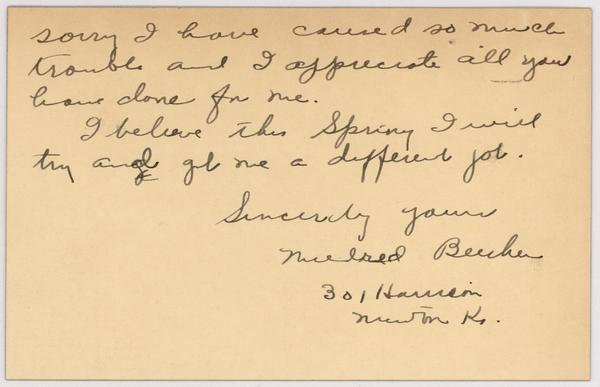 sorry I have caused so much
trouble and I appreciate all you
have done for me.
I believe this Spring I will
try and get me a different job.
Sincerely yours
Mildred
301 Harrison
Newton Ks.